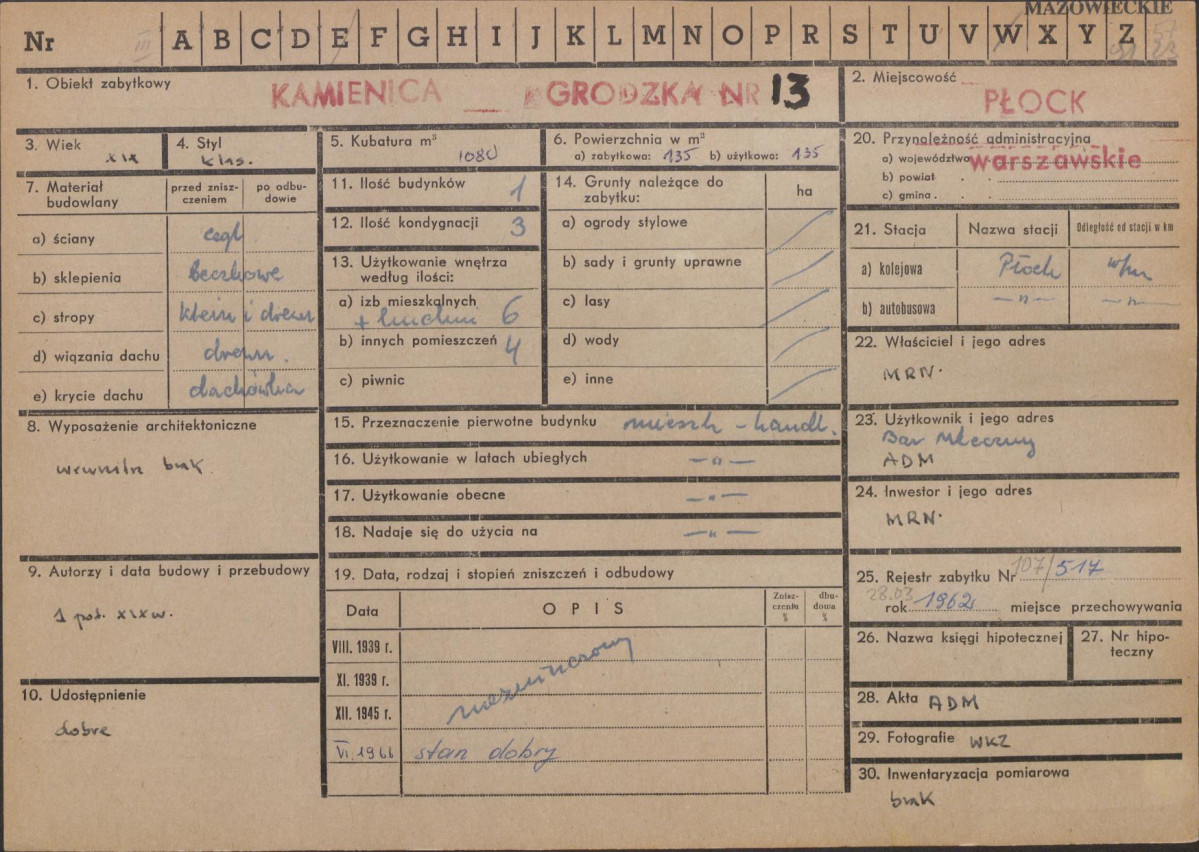 MAZOWIECKIE
Nr III A B C D E F G H I J K L M N O P R S T U V W X Y Z
1. Obiekt zabytkowy
KAMIENICA GRODZKA NR 13
2. Miejscowość
PŁOCK
3. Wiek
XIX
4. Styl
klas.
5. Kubatura m³
1080
6. Powierzchnia w m²
a) zabytkowa: 135 b) użytkowa: 135
20. Przynależność administracyjna
a) województwo warszawskie
b) powiat
c) gmina
7. Materiał budowlany
przed zniszczeniem
po odbudowie
a) ściany cegł
b) sklepienia beczkowe
c) stropy klein i drewn
d) wiązania dachu drewn.
e) krycie dachu dachówka
11. Ilość budynków 1
12. Ilość kondygnacji 3
13. Użytkowanie wnętrza
według ilości:
a) izb mieszkalnych 6
+ kuchni
b) innych pomieszczeń 4
c) piwnic
14. Grunty należące do
zabytku:
ha
a) ogrody stylowe
b) sady i grunty uprawne
c) lasy
d) wody
e) inne
21. Stacja Nazwa stacji Odległość od stacji w km
a) kolejowa Płock
b) autobusowa —"— —"—
22. Właściciel i jego adres
MRN.
8. Wyposażenie architektoniczne
wewnątrz brak.
15. Przeznaczenie pierwotne budynku mieszk – handl.
16. Użytkowanie w latach ubiegłych —"—
17. Użytkowanie obecne —"—
18. Nadaje się do użycia na —"—
23. Użytkownik i jego adres
Bar Mleczny
ADM
24. Inwestor i jego adres
MRN.
9. Autorzy i data budowy i przebudowy
1 poł. XIX w.
19. Data, rodzaj i stopień zniszczeń i odbudowy
Data OPIS Zniszczenia % dbudowa %
VIII. 1939 r.
XI. 1939 r.
XII. 1945 r.
niezniszczony
VI. 1966 stan dobry
25. Rejestr zabytku Nr 107/517
28.03
rok 1962 miejsce przechowywania
26. Nazwa księgi hipotecznej
27. Nr hipoteczny
10. Udostępnienie
dobre
28. Akta ADM
29. Fotografie WKZ
30. Inwentaryzacja pomiarowa
brak